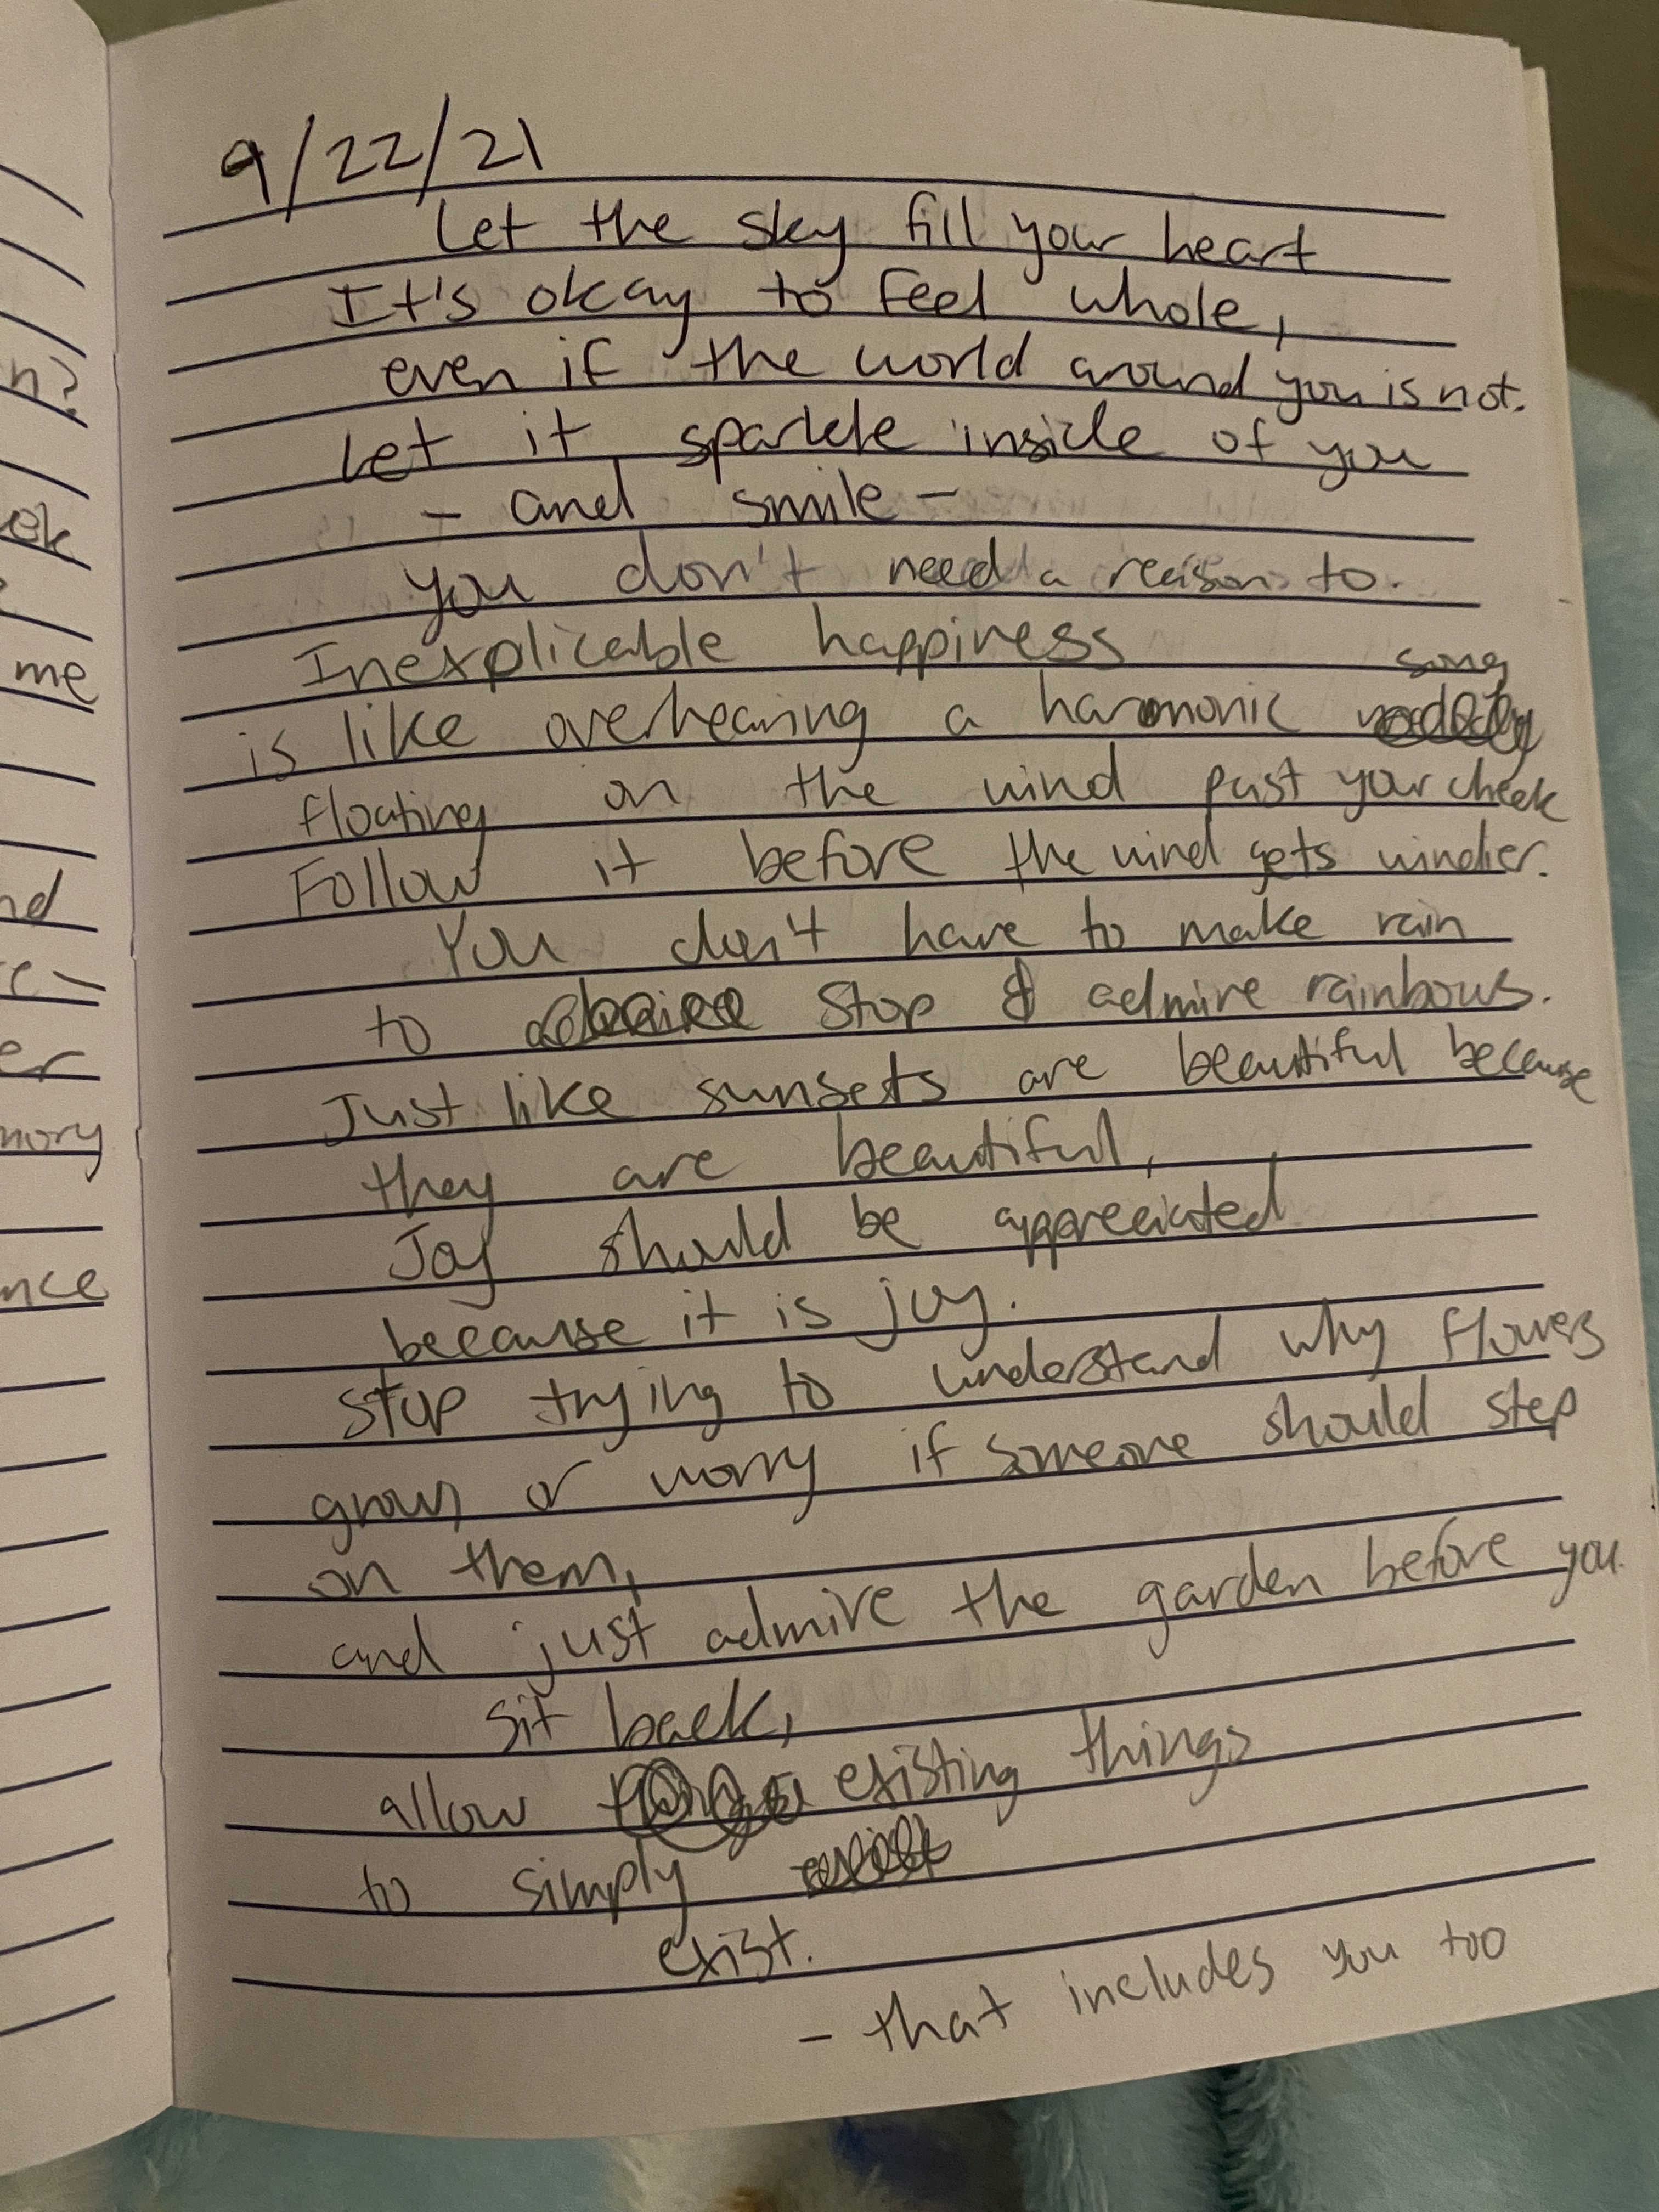 9/22/21
Let the sky fill your heart
It's okay to feel whole,
even if the world around you is not.
Let it sparkle inside of you
- and smile -
you don't need a reason to.
Inexplicable happiness
song
is like overhearing a harmonic
floating on the wind past your cheek
Follow it before the wind gets windier.
You don't have to make rain
to stop & admire rainbows.
Just like sunsets are beautiful because
they are beautiful,
Joy should be appreciated
because it is joy.
stop trying to understand why flowers
grow, or worry if someone should step
on them,
and just admire the garden before you.
sit back,
allow existing things
to simply
exist.
- that includes you too
n?
ok
me
nd
er
mory
nce